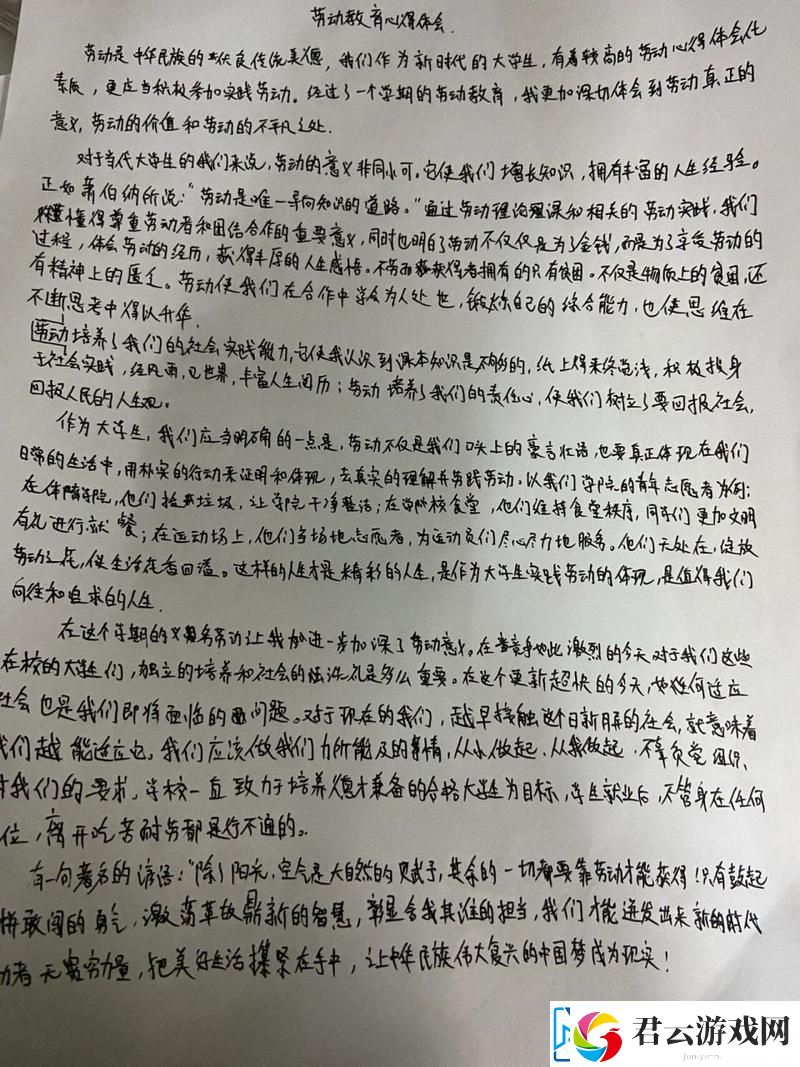 劳动教育心得体会.
劳动是中华民族的优良传统美德，我们作为新时代的大学生，有着较高的劳动心得体会化
素质，更应当积极参加实践劳动。经过了一个学期的劳动教育，我更加深切体会到劳动真正的
意义，劳动的价值和劳动的不平凡之处.
对于当代大学生的我们来说，劳动的意义非同小可。它使我们增长知识，拥有丰富的人生经验。
正如萧伯纳所说：“劳动是唯一导向知识的道路。”通过劳动理论理课和相关的劳动实践，我们
懂得尊重劳动者和团结合作的重要意义，同时也明白了劳动不仅仅是为了金钱，而是为了享受劳动的
过程，体会劳动的经历，获得丰厚的人生感悟。不劳而获得者拥有的只有贫困。不仅是物质上的贫困，还
有精神上的匮乏。劳动使我们在合作中学会为人处世，锻炼自己的综合能力，也使思维在
不断思考中得以升华.
劳动培养了我们的社会实践能力，它使我认识到课本知识是不够的，纸上得来终觉浅，积极投身
于社会实践，经风雨，见世界，丰富人生阅历；劳动培养了我们的责任心，使我们树立了要回报社会，
回报人民的人生观。
作为大学生，我们应当明确的一点是，劳动不仅是我们口头上的豪言壮语，也要真正体现在我们
日常的生活中，用朴实的行动来证明和体现，去真实的理解并实践劳动。以我们学院的青年志愿者为例：
在体障学院，他们捡起垃圾，让学院干净整洁；在学校食堂，他们维持食堂秩序，同学们更加文明
有礼进行就餐；在运动场上，他们当场地志愿者，为运动员们尽心尽力地服务。他们无处在，绽放
劳动之花，使生活花香四溢。这样的人生才是精彩的人生，是作为大学生实践劳动的体现，是值得我们
向往和追求的人生.
在这个学期的义务劳动让我进一步加深了劳动意义。在竞争如此激烈的今天对于我们这些
在校的大学生们，独立的培养和社会的洗礼是多么重要。在这个更新超快的今天，如何适应
社会也是我们即将面临的问题。对于现在的我们，越早接触这个日新月异的社会，就意味着
我们越能适应它。我们应该做我们力所能及的事情，从小做起、从我做起，不辜负党组织、
对我们的要求。学校一直致力于培养德才兼备的合格大学生为目标，学生就业后，不管身在任何
位，离开吃苦耐劳都是行不通的。
有一句著名的谚语：“除了阳光，空气是大自然的赋予，其余的一切都要靠劳动才能获得！只有鼓起
拼敢闯的勇气，激荡革故鼎新的智慧，彰显舍我其谁的担当，我们才能迸发出来新的时代
动者无穷力量，把美好生活攥紧在手中，让中华民族伟大复兴的中国梦成为现实！
君云游戏网